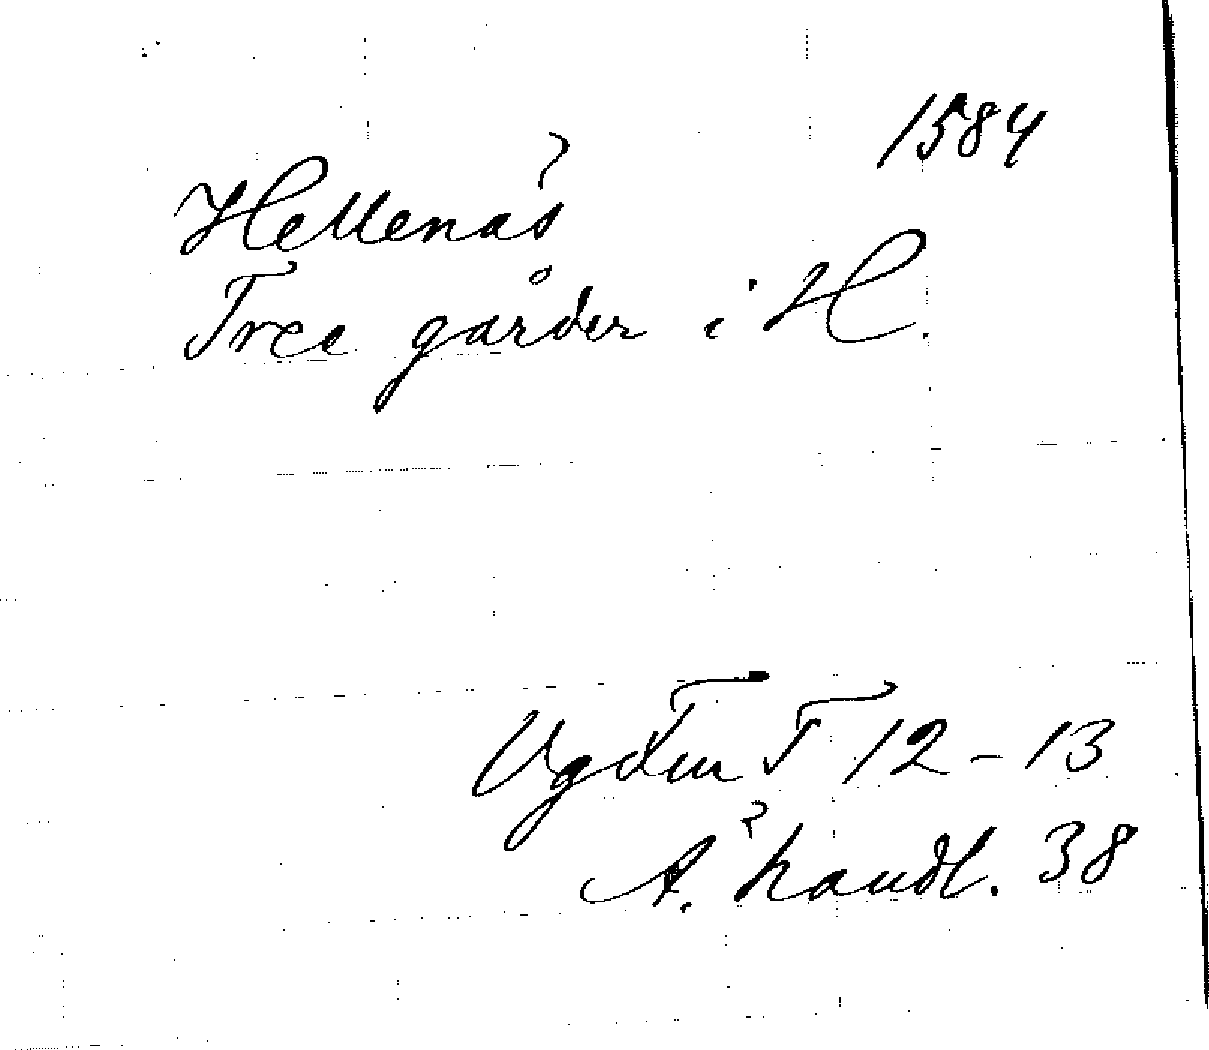 1584
Hellenäs
Tree gårder i H.
Ugden T 12-13
A. handl. 38